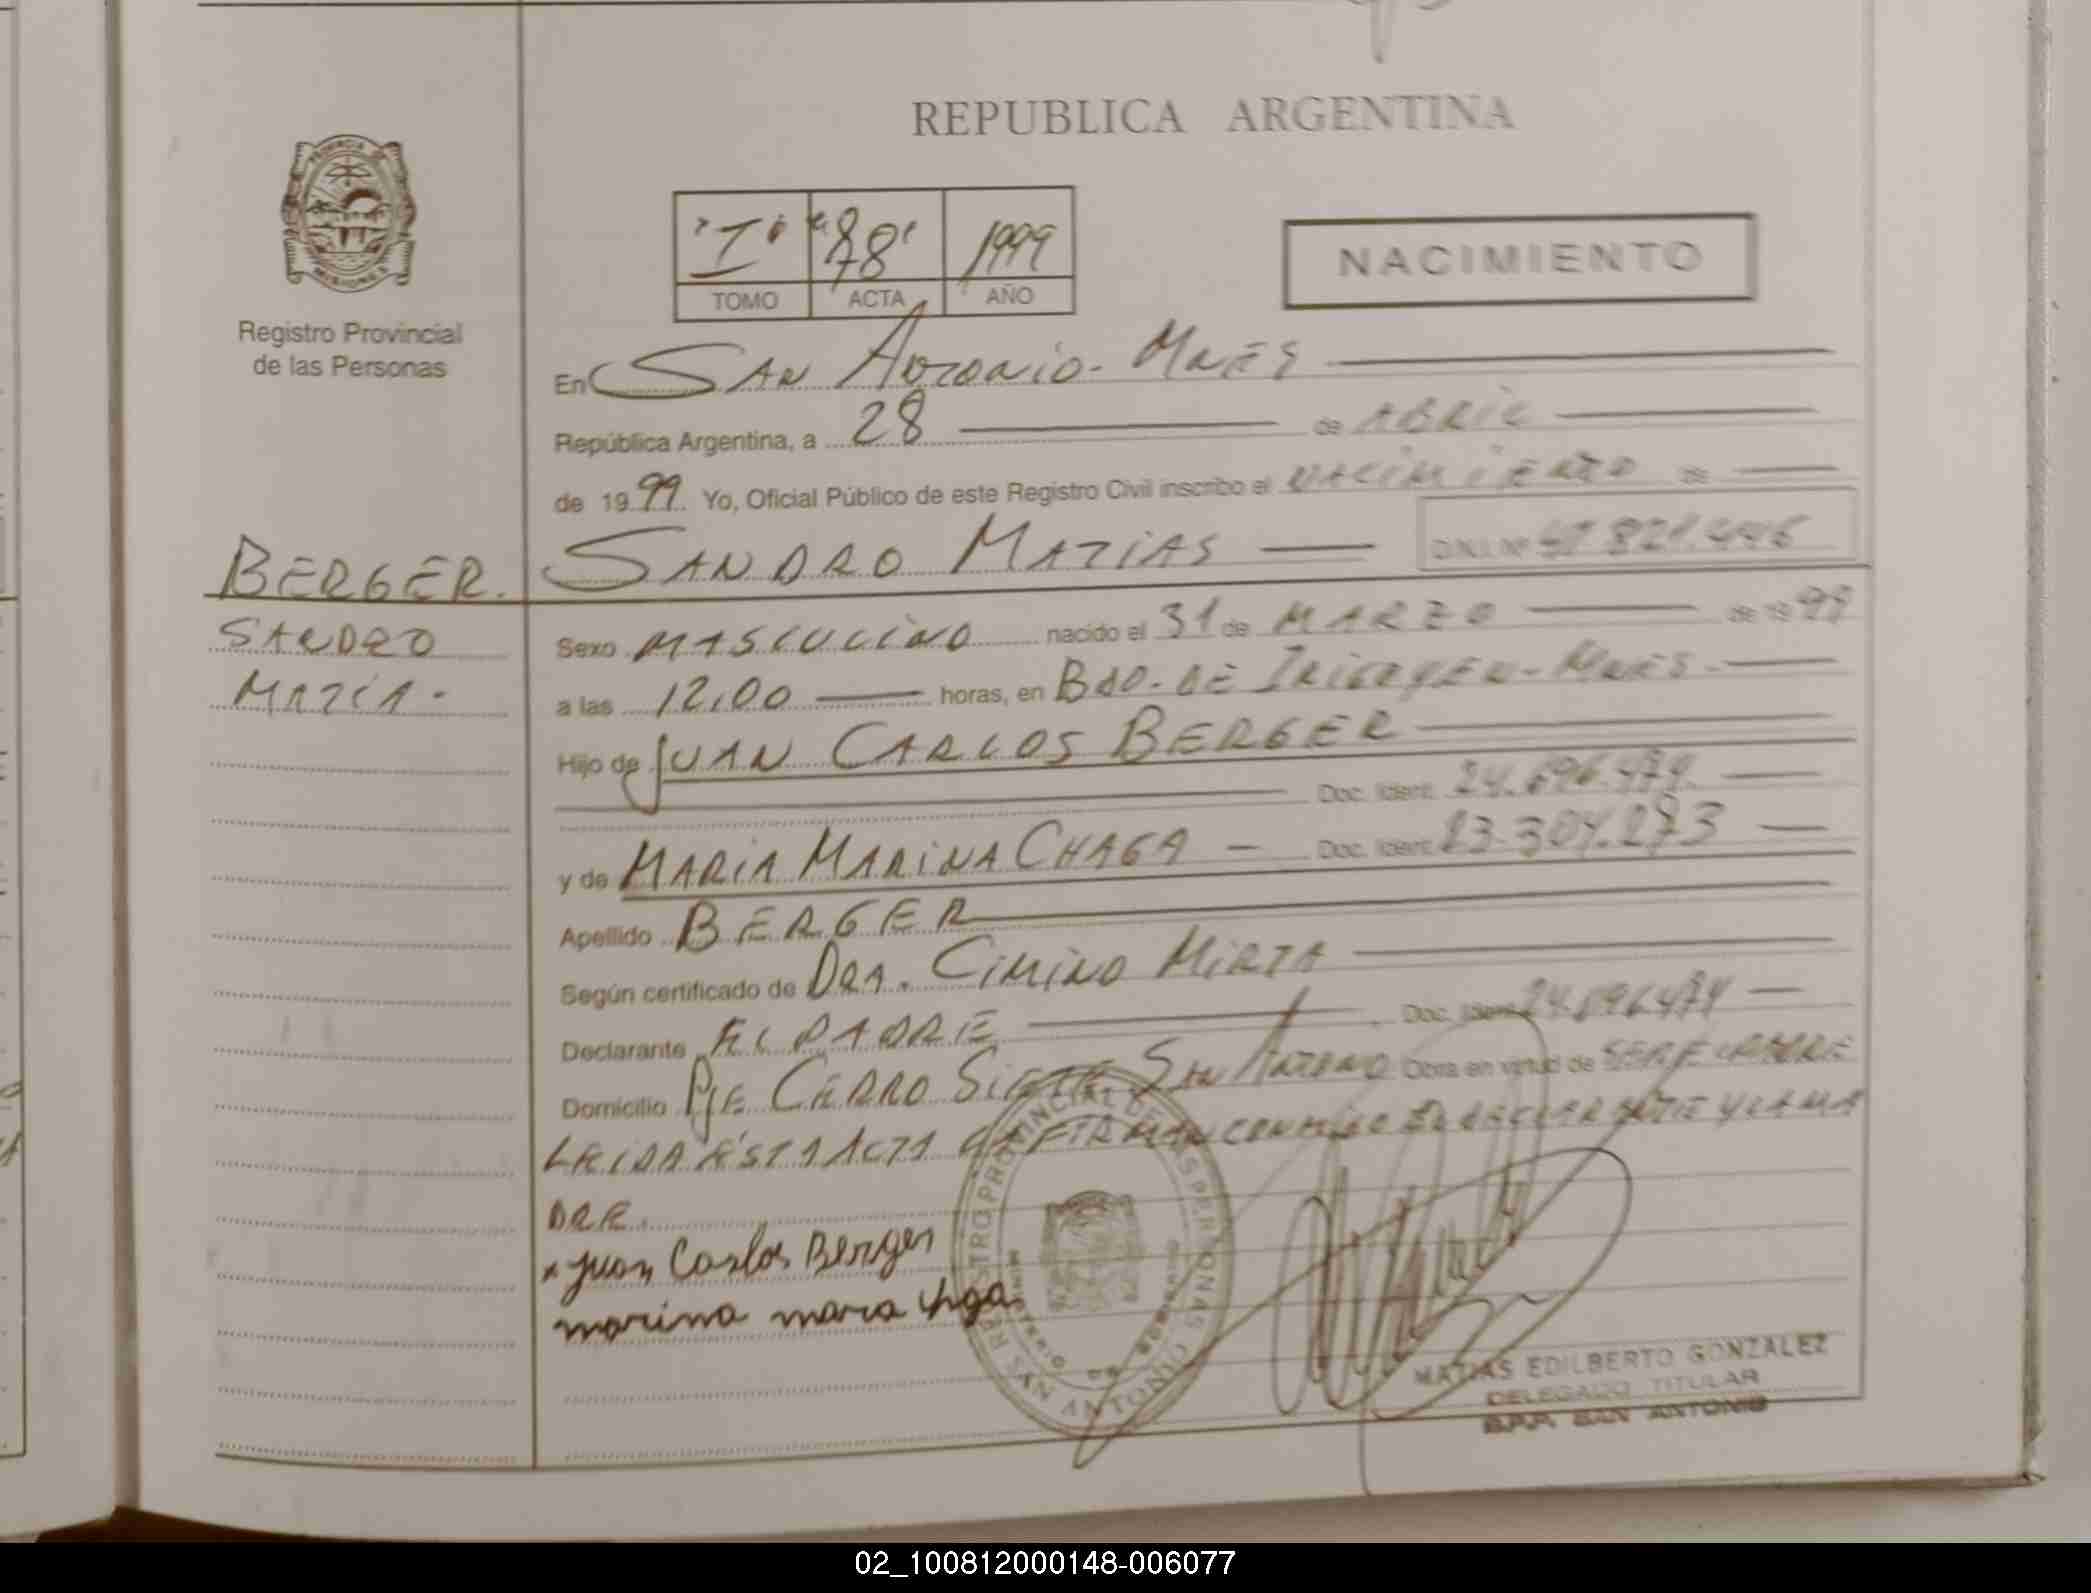 REPUBLICA ARGENTINA
PROVINCIA DE MISIONES
Registro Provincial
de las Personas
"I" "78" 1999
TOMO ACTA AÑO
NACIMIENTO
En SAN ANTONIO - MNES
República Argentina, a 28 de ABRIL
de 1999 Yo, Oficial Público de este Registro Civil inscribo el NACIMIENTO de
BERGER. SANDRO MATIAS D.N.I. Nº
SANDRO
MATIA.
Sexo MASCULINO nacido el 31 de MARZO de 1999
a las 12,00 horas, en BDO. DE IRIGOYEN - MNES.
Hijo de JUAN CARLOS BERGER
Doc. Ident. 24.696.474.
y de MARIA MARINA CHAGA - Doc. Ident. 23.304.273
Apellido BERGER
Según certificado de DRA. CIMINO MIRTA
Declarante EL PADRE Doc. Ident. 24.696.474
Domicilio PJE CERRO SIETE SAN ANTONIO Obra en virtud de SER EL PADRE
LEIDA ESTA ACTA LA FIRMAN CONMIGO EL DECLARANTE Y LA MA
DRE.
x Juan Carlos Berger
marina mara chga
REGISTRO PROVINCIAL DE LAS PERSONAS
SAN ANTONIO
MATIAS EDILBERTO GONZALEZ
DELEGADO TITULAR
R.P.P. SAN ANTONIO
02_100812000148-006077